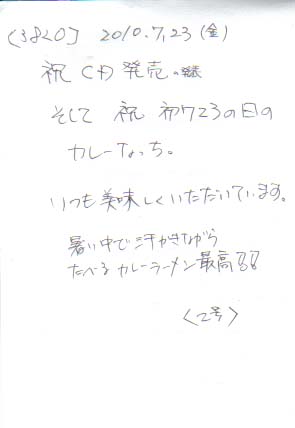 (3820] 2010.7.23 (金)
祝 CD 発売の発表
そして 祝 初723の日の
カレーなっち。
いつも美味しくいただいています。
暑い中で汗かきながら
たべるカレーラーメン最高!!
〈2号〉